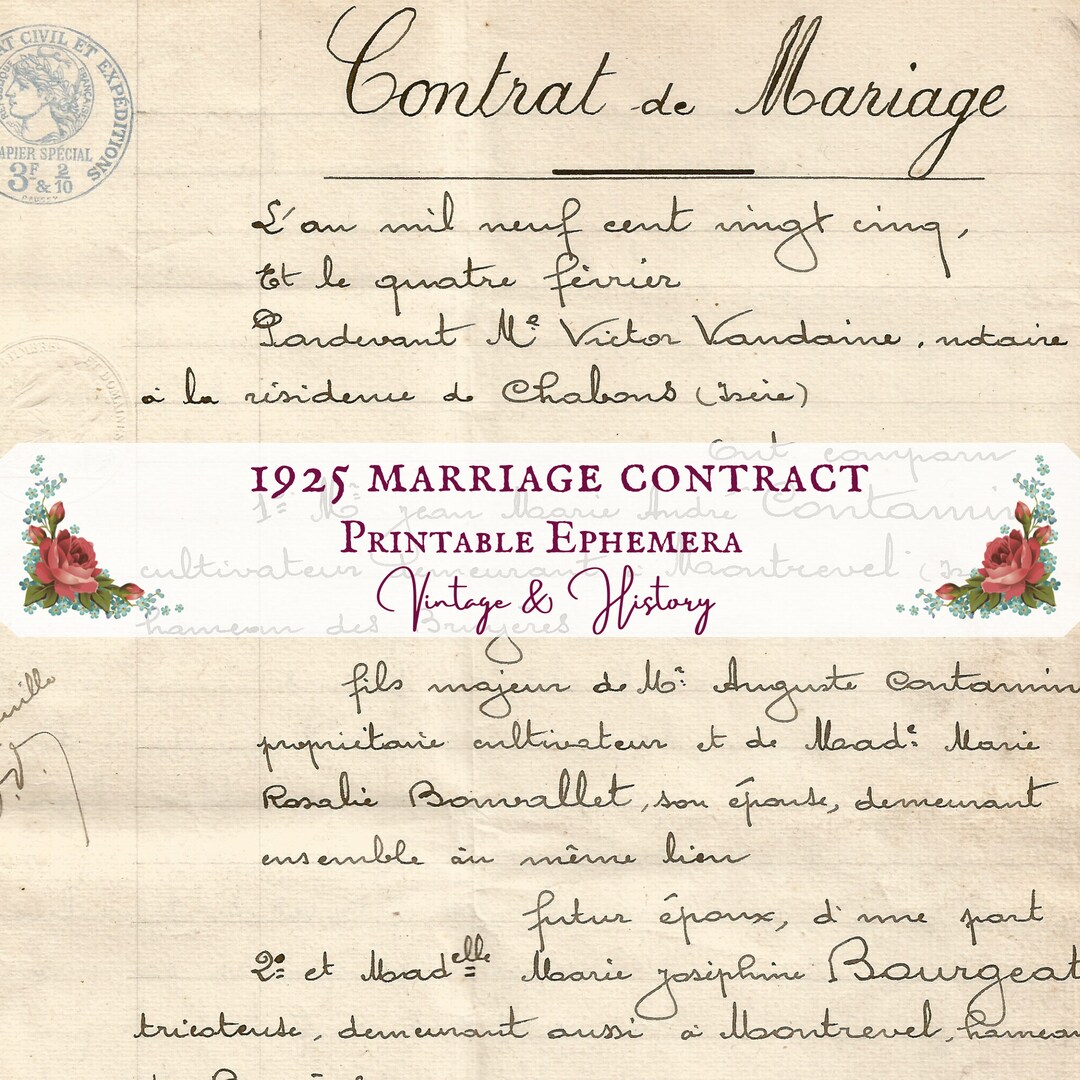 ÉTAT CIVIL ET EXPÉDITIONS
RÉPUBLIQUE FRANÇAISE
PAPIER SPÉCIAL
3F 2
& 10
Contrat de Mariage
L'an mil neuf cent vingt cinq,
Et le quatre février
Pardevant Me Victor Vandaine, notaire
à la résidence de Chabons (Isère)
Ont comparu
1925 MARRIAGE CONTRACT
1º Mr Jean Marie André Contamin
PRINTABLE EPHEMERA
cultivateur demeurant à Montrevel
Vintage & History
hameau des Bruyères
fils majeur de Mr Auguste Contamin
propriétaire cultivateur et de Made Marie
Rosalie Bonvallet, son épouse, demeurant
ensemble au même lieu
futur époux, d'une part
2º et Madelle Marie Joséphine Bourgeat
tricoteuse, demeurant aussi à Montrevel, hameau